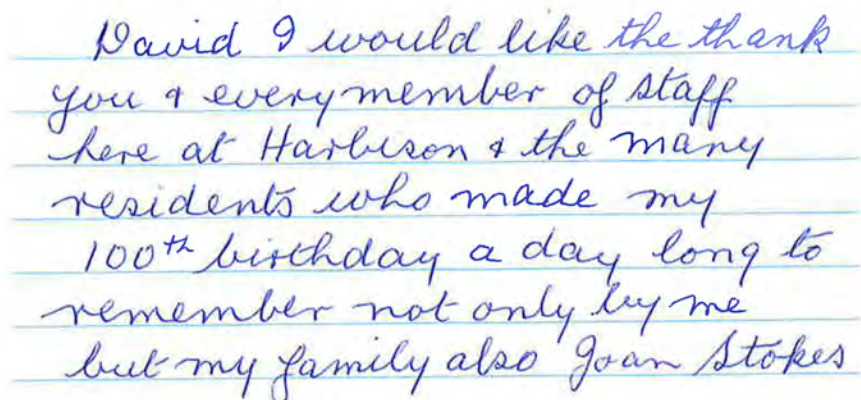 David I would like the thank
you & every member of staff
here at Harbison & the many
residents who made my
100th birthday a day long to
remember not only by me
but my family also Joan Stokes